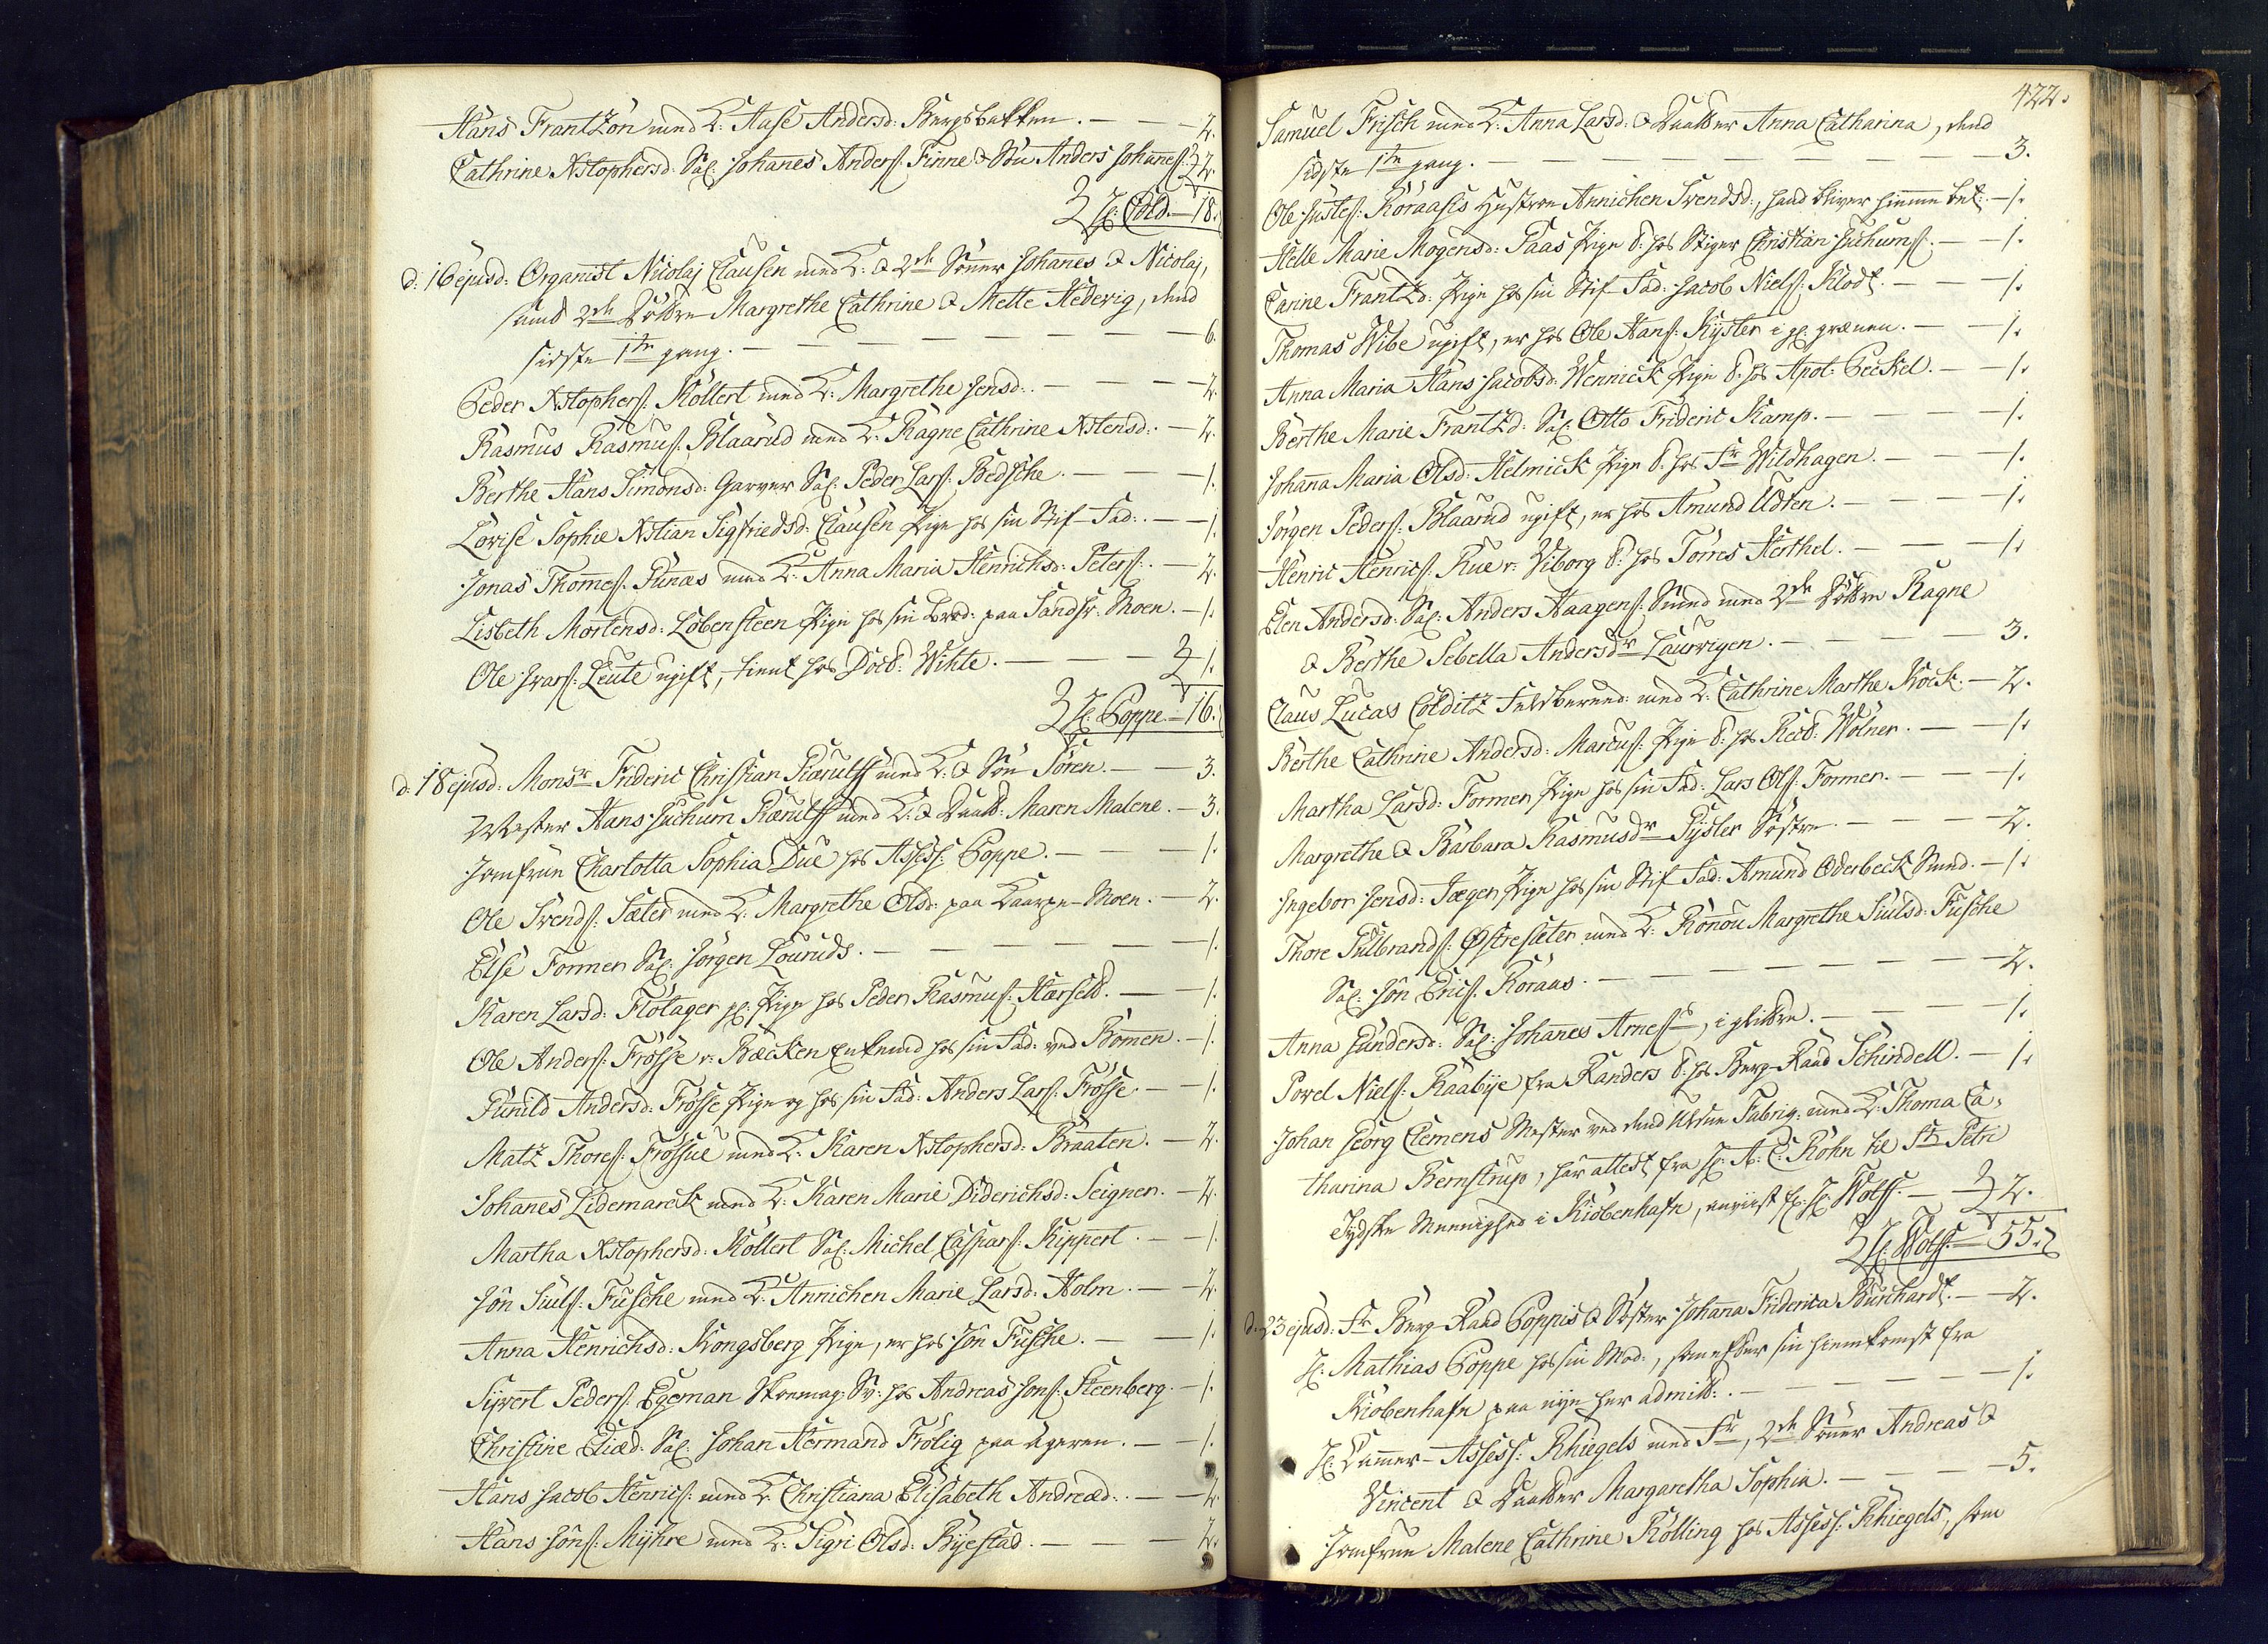 Hans Frantzøn med K: Aase Andersd: Bergsbakken. — — 2.
Cathrine Xstophersd: Sal: Johanes Anders: Finne & Søn Anders Johanes: 2.
H: Cold. — 18.
d: 16 ejusd: Organist Nicolaj Clausen med K: & 2de Sønner Johanes & Nicolaj,
samt 2de Døttre Margrethe Cathrine & Mette Hedevig, dend
sidste 1te gang. — — — — — 6.
Peder Xstophers: Køllert med K: Margrethe Jensd: — — — 2.
Rasmus Rasmus: Blaarud med K: Ragne Cathrine Xstensd: — 2.
Berthe Hans Simonsd: Garver Sal: Peder Lars: Bedsche. — — 1.
Lovise Sophie Xstian Sigfriedsd: Clausen Pige hos sin Stif-Fad: — 1.
Jonas Thomes: Punæs med K: Anna Maria Henrichsd: Peters: — 2.
Lisbeth Mortensd: Løbensteen Pige hos sin Brod: paa Sandsv: Moen. — 1.
Ole Ivars: Leute ugift, tient hos Doct: Wihte. — — — 1.
H: Poppe. — 16.
d: 18 ejusd: Monsr Frideric Christian Rærulff med K: & Søn Søren. — 3.
Mester Hans Juchum Rærulff med K: & Daatt: Maren Malene. — 3.
Jomfrue Charlotta Sophia Due hos Assess: Poppe. — — 1.
Ole Svends: Sæter med K: Margrethe Olsd: paa Kaarpe-Moen. — 2.
Else Former Sal: Jørgen Lounids. — — — — — 1.
Karen Larsd: Flotager gl: Pige hos Peder Rasmus: Harseld. — 1.
Ole Anders: Frøsse v: Bæcken Enkemd hos sin Fad: ved Bommen. — 1.
Gunild Andersd: Frøsse Pige og hos sin Fad: Anders Lars: Frøsse. — 1.
Matz Thores: Frøssue med K: Karen Xstophersd: Braaten. — 2.
Johanes Lidemarck med K: Karen Marie Diderichsd: Seigner. — 2.
Martha Xstophersd: Køllert Sal: Michel Caspars: Kippert. — 1.
Jøn Siuls: Fusche med K: Annichen Marie Larsd: Holm. — 2.
Anna Henrichsd: Kongsberg Pige, er hos Jøn Fusche. — 1.
Sivert Peders: Egeman Skomag: Sv: hos Andreas Jons: Steenberg. — 1.
Christine Eliæd: Sal: Johan Hermand Frølig paa Ageren. — 1.
Hans Jacob Henrics: med K: Christiana Elisabeth Andreæd: — 2.
Hans Jøns: Myhre med K: Sigri Olsd: Byestad. — — 2.
422.
Samuel Frisch med K: Anna Larsd: & Daatter Anna Catharina, dend
sidste 1te gang. — — — — — 3.
Ole Justes: Røraases Hustrue Annichen Svendsd:, hand bliver hiemme bet: — 1.
Helle Marie Mogensd: Paas Pige t: hos Stiger Christian Juchums: — 1.
Carine Frantzd: Pige hos sin Stif-Fad: Jacob Niels: Klodt. — 1.
Thomas Wibe ugift, er hos Ole Hans: Kyster i gl: grænen. — 1.
Anna Maria Hans Jacobsd: Wennick Pige t: hos Apot: Peckel. — 1.
Berthe Marie Frantzd: Sal: Otto Frideric Kamp. — — 1.
Johana Maria Olsd: Helmick Pige t: hos Fr Wildhagen. — 1.
Jørgen Peders: Blaarud ugift, er hos Amund Udten. — — 1.
Henric Henrics: Rue v: Viborg t: hos Torres Herthel. — — 1.
Elen Andersd: Sal: Anders Haagens: Smed med 2de Døttre Ragne
& Berthe Sebella Andersdr Laurvigen. — — — 3.
Claus Lucas Colditz Feldbereed: med K: Cathrine Marthe Kock. — 2.
Berthe Cathrine Andersd: Marcus: Pige t: hos Rect: Wølner. — 1.
Martha Larsd: Former Pige hos sin Fad: Lars Ols: Former. — 1.
Margrethe & Barbara Rasmusdr Pyster Søstre — — 2.
Ingebor Jensd: Jæger Pige hos sin Stif Fad: Amund Oderbeck Smed. — 1.
Thore Gulbrands: Østresæter med K: Ronou Margrethe Siulsd: Fusche
Sal: Jøn Erics: Røraas. — — — — — 2.
Anna Gundersd: Sal: Johanes Arnes:, i glittre. — — 1.
Povel Niels: Raabye fra Randers t: hos Berg-Raad Schindell. — 1.
Johan Georg Clemens Mester ved dend Uldne Fabriq: med K: Thoma Ca-
tharina Bernstrup, har attest fra H: A: C: Rohn til St: Petri
Tydske Meenighed i Kiøbenhafn, anviist H: Wolff. — 2.
H: Wolff. — 55.
d: 23 ejusd: Fr Berg-Raad Poppes & Søster Johana Friderica Burchardt. — 2.
H: Mathias Poppe hos sin Mod:, som efter sin hiemkomst fra
Kiøbenhafn paa nye her admitt: — — — 1.
H: Kammer-Assess: Rhiegels med Fr, 2de Sønner Andreas &
Vincent & Daatter Margaretha Sophia. — — — 5.
Jomfrue Malene Cathrine Rølling hos Assess: Rhiegels, som